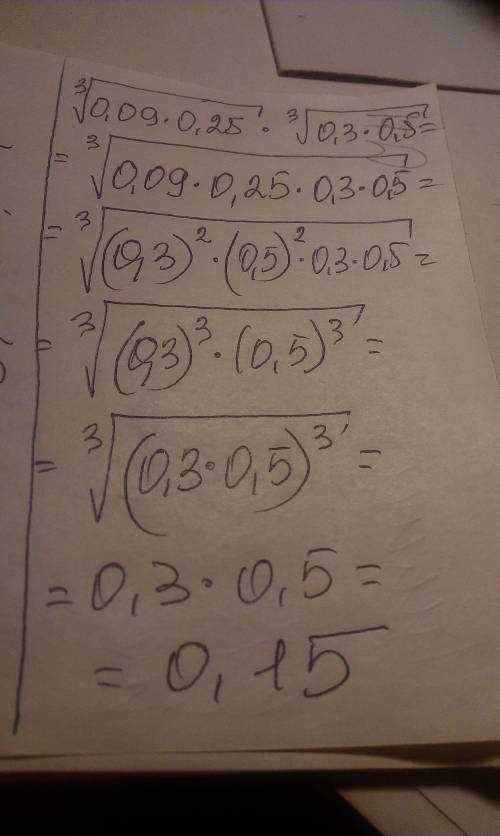 ∛(0,09·0,25) · ∛(0,3·0,5) =
= ∛(0,09·0,25·0,3·0,5) =
= ∛((0,3)²·(0,5)²·0,3·0,5) =
= ∛((0,3)³·(0,5)³) =
= ∛((0,3·0,5)³) =
= 0,3·0,5 =
= 0,15